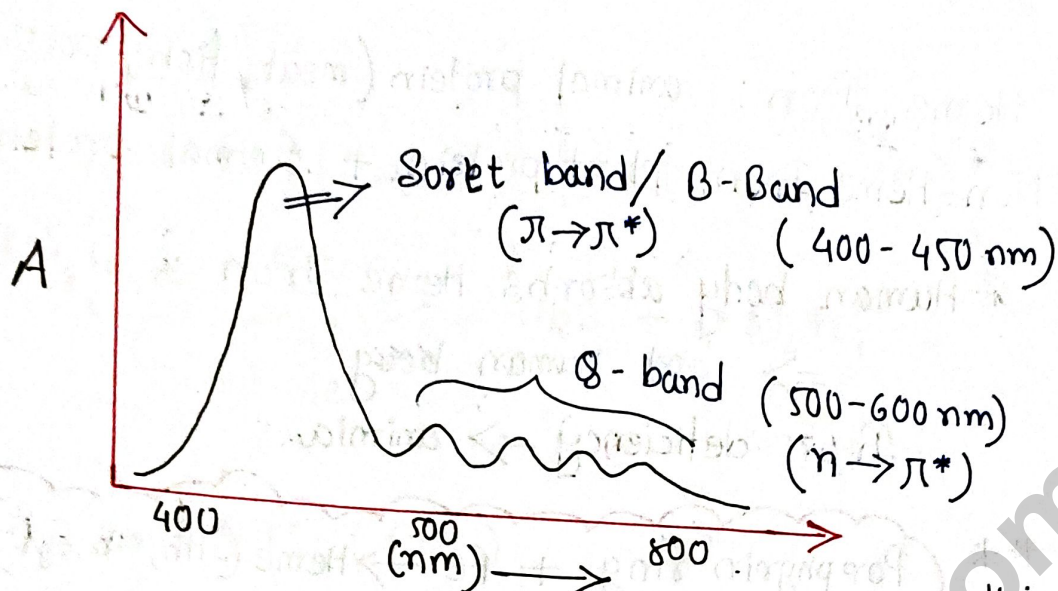 Soret band / B-Band
(π→π*) (400-450 nm)
A
Q-band (500-600 nm)
(n→π*)
400 500 800
(nm)